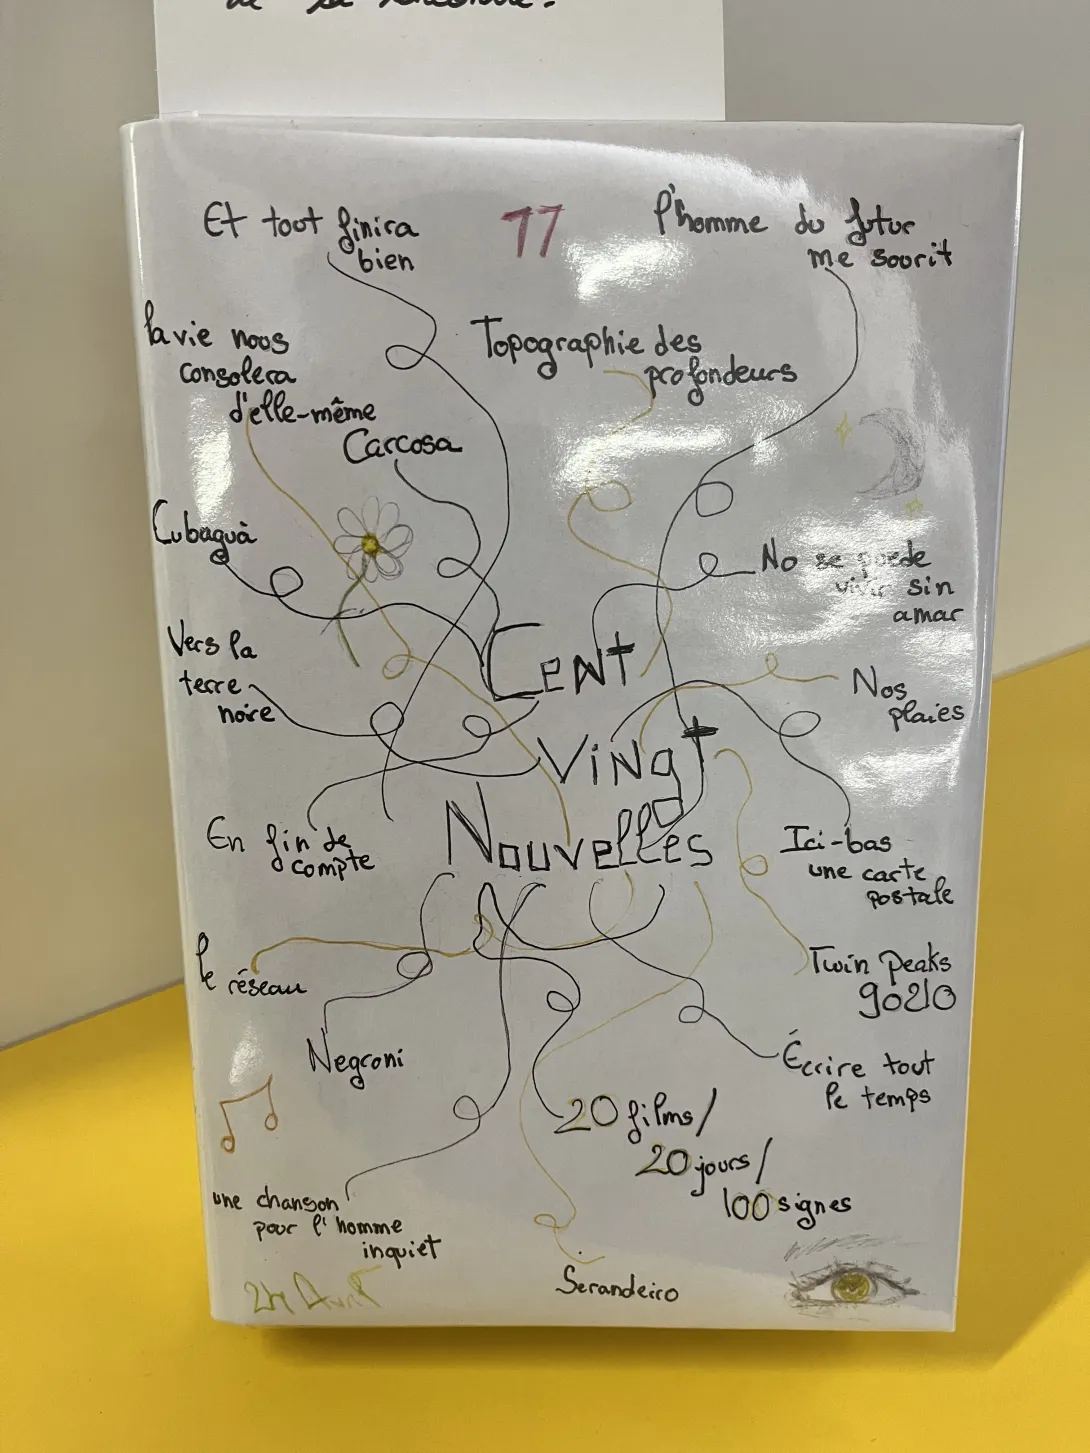 Et tout finira
bien
17
l'homme du futur
me sourit
la vie nous
consolera
d'elle-même
Topographie des
profondeurs
Carcosa
Cubaguà
No se puede
vivir sin
amar
Vers la
terre
noire
Cent
Vingt
Nouvelles
Nos
plaies
En fin de
compte
Ici-bas
une carte
postale
le
réseau
Twin Peaks
90210
Negroni
Écrire tout
le temps
20 films/
20 jours/
100 signes
une chanson
pour l'homme
inquiet
Serandeiro
24 Avril